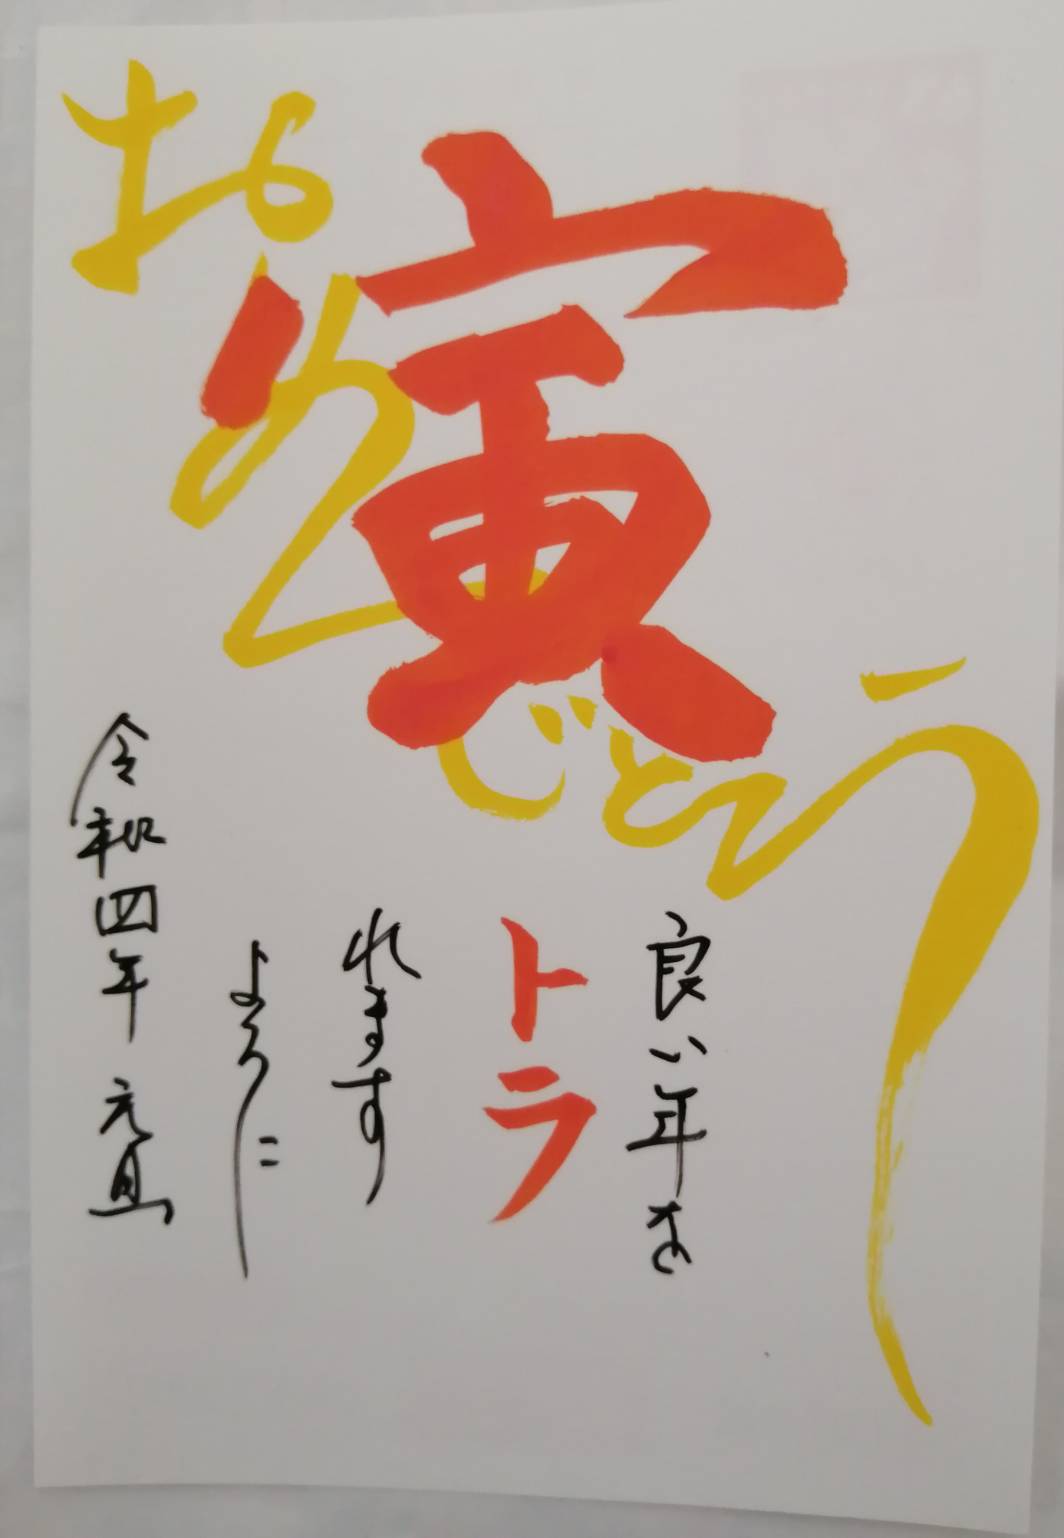 おめでとう
寅
良い年を
トラ
れます
ように
令和四年 元旦